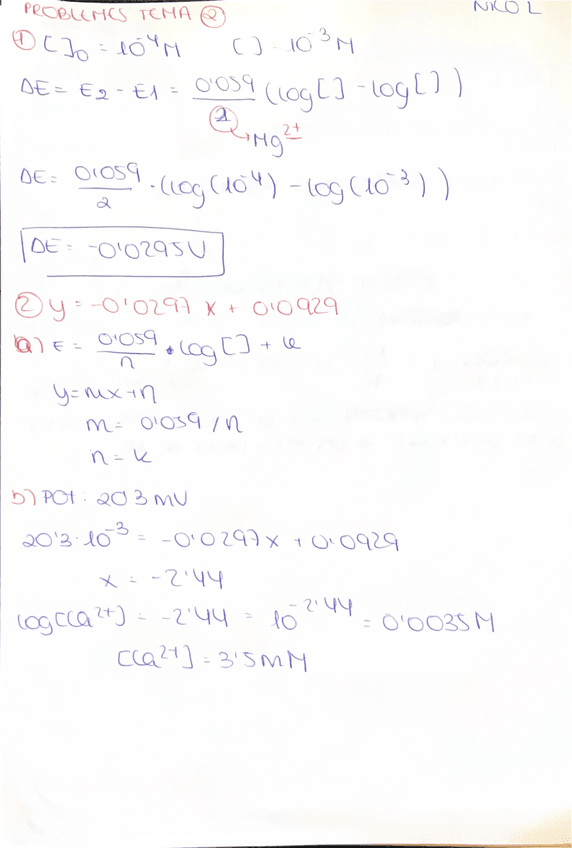 PROBLEMES TEMA 2
NICOL
1) [ ]₀ = 10⁻⁴ M [ ] = 10⁻³ M
ΔE = E2 - E1 = 0'059/2 (log[ ] - log[ ])
Mg²⁺
ΔE = 0'059/2 · (log(10⁻⁴) - log(10⁻³))
ΔE = -0'0295V
2) y = -0'0297 x + 0'0929
a) E = 0'059/n · log[ ] + k
y = mx + n
m = 0'059 / n
n = k
b) POT: 20'3 mV
20'3·10⁻³ = -0'0297x + 0'0929
x = -2'44
log[Ca²⁺] = -2'44 = 10⁻²'⁴⁴ = 0'0035M
[Ca²⁺] = 3'5mM